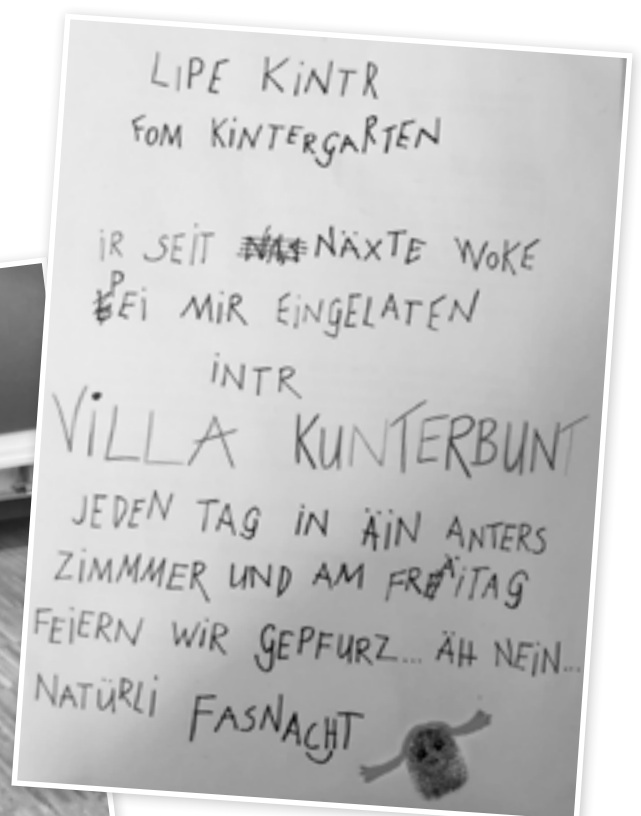 LiPE KiNTR
FOM KiNTERGARTEN
iR SEiT NÄXTE WOKE
PEi MiR EiNGELATEN
iNTR
ViLLA KUNTERBUNT
JEDEN TAG iN ÄiN ANTERS
ZiMMMER UND AM FRÄiTAG
FEiERN WiR GEPFURZ... ÄH NEiN...
NATÜRLi FASNACHT